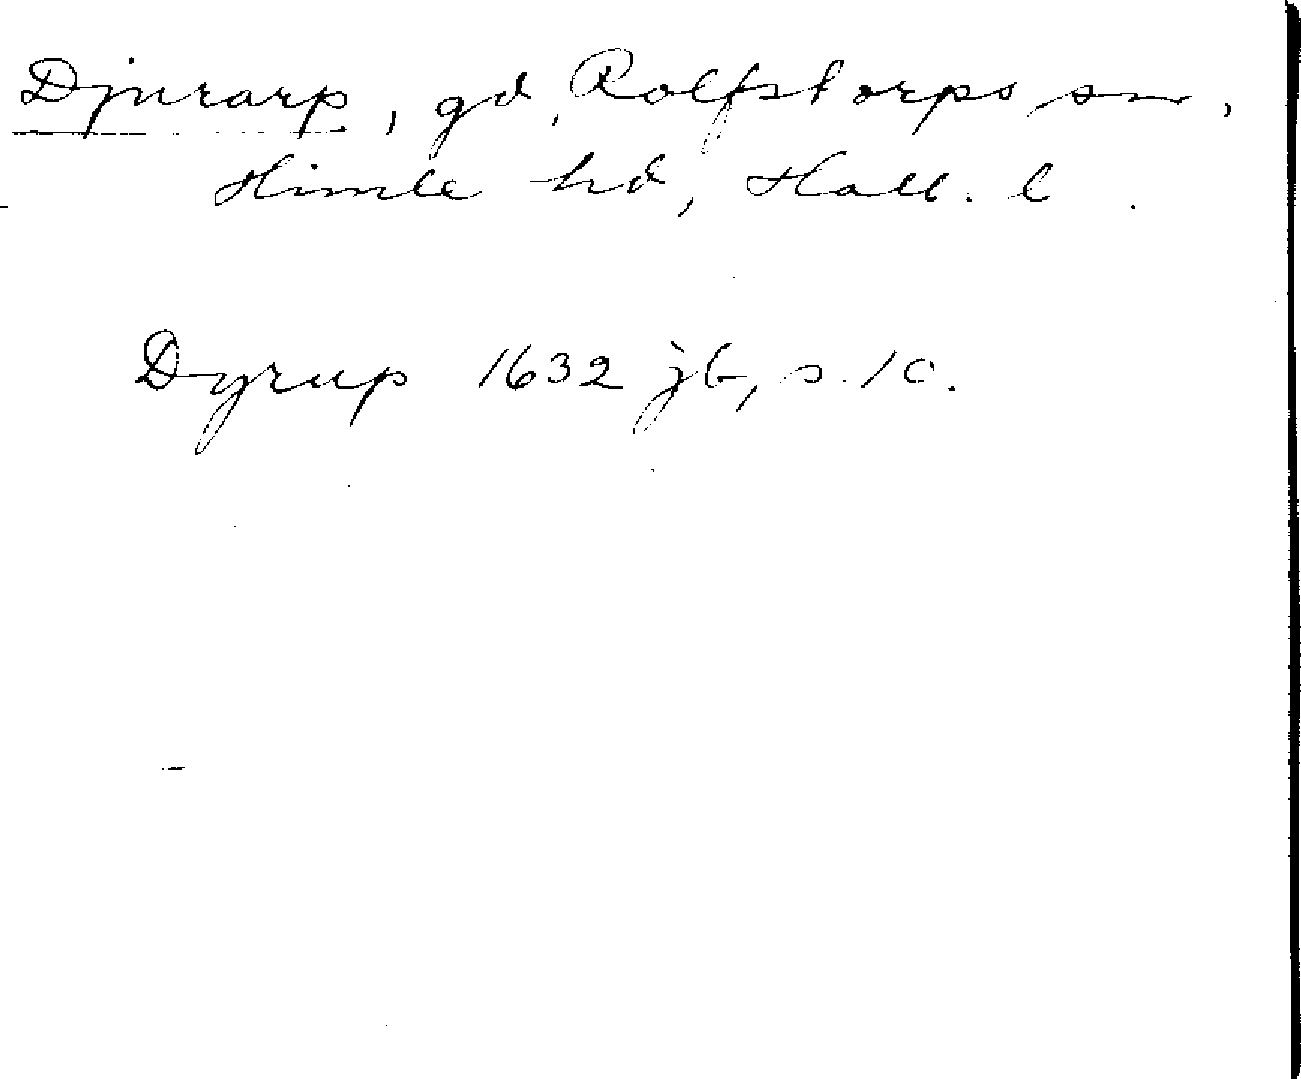 Djurarp, gd, Rolfstorps sn,
Himle hd, Hall. l.
Dyrup 1632 jb, s. 10.